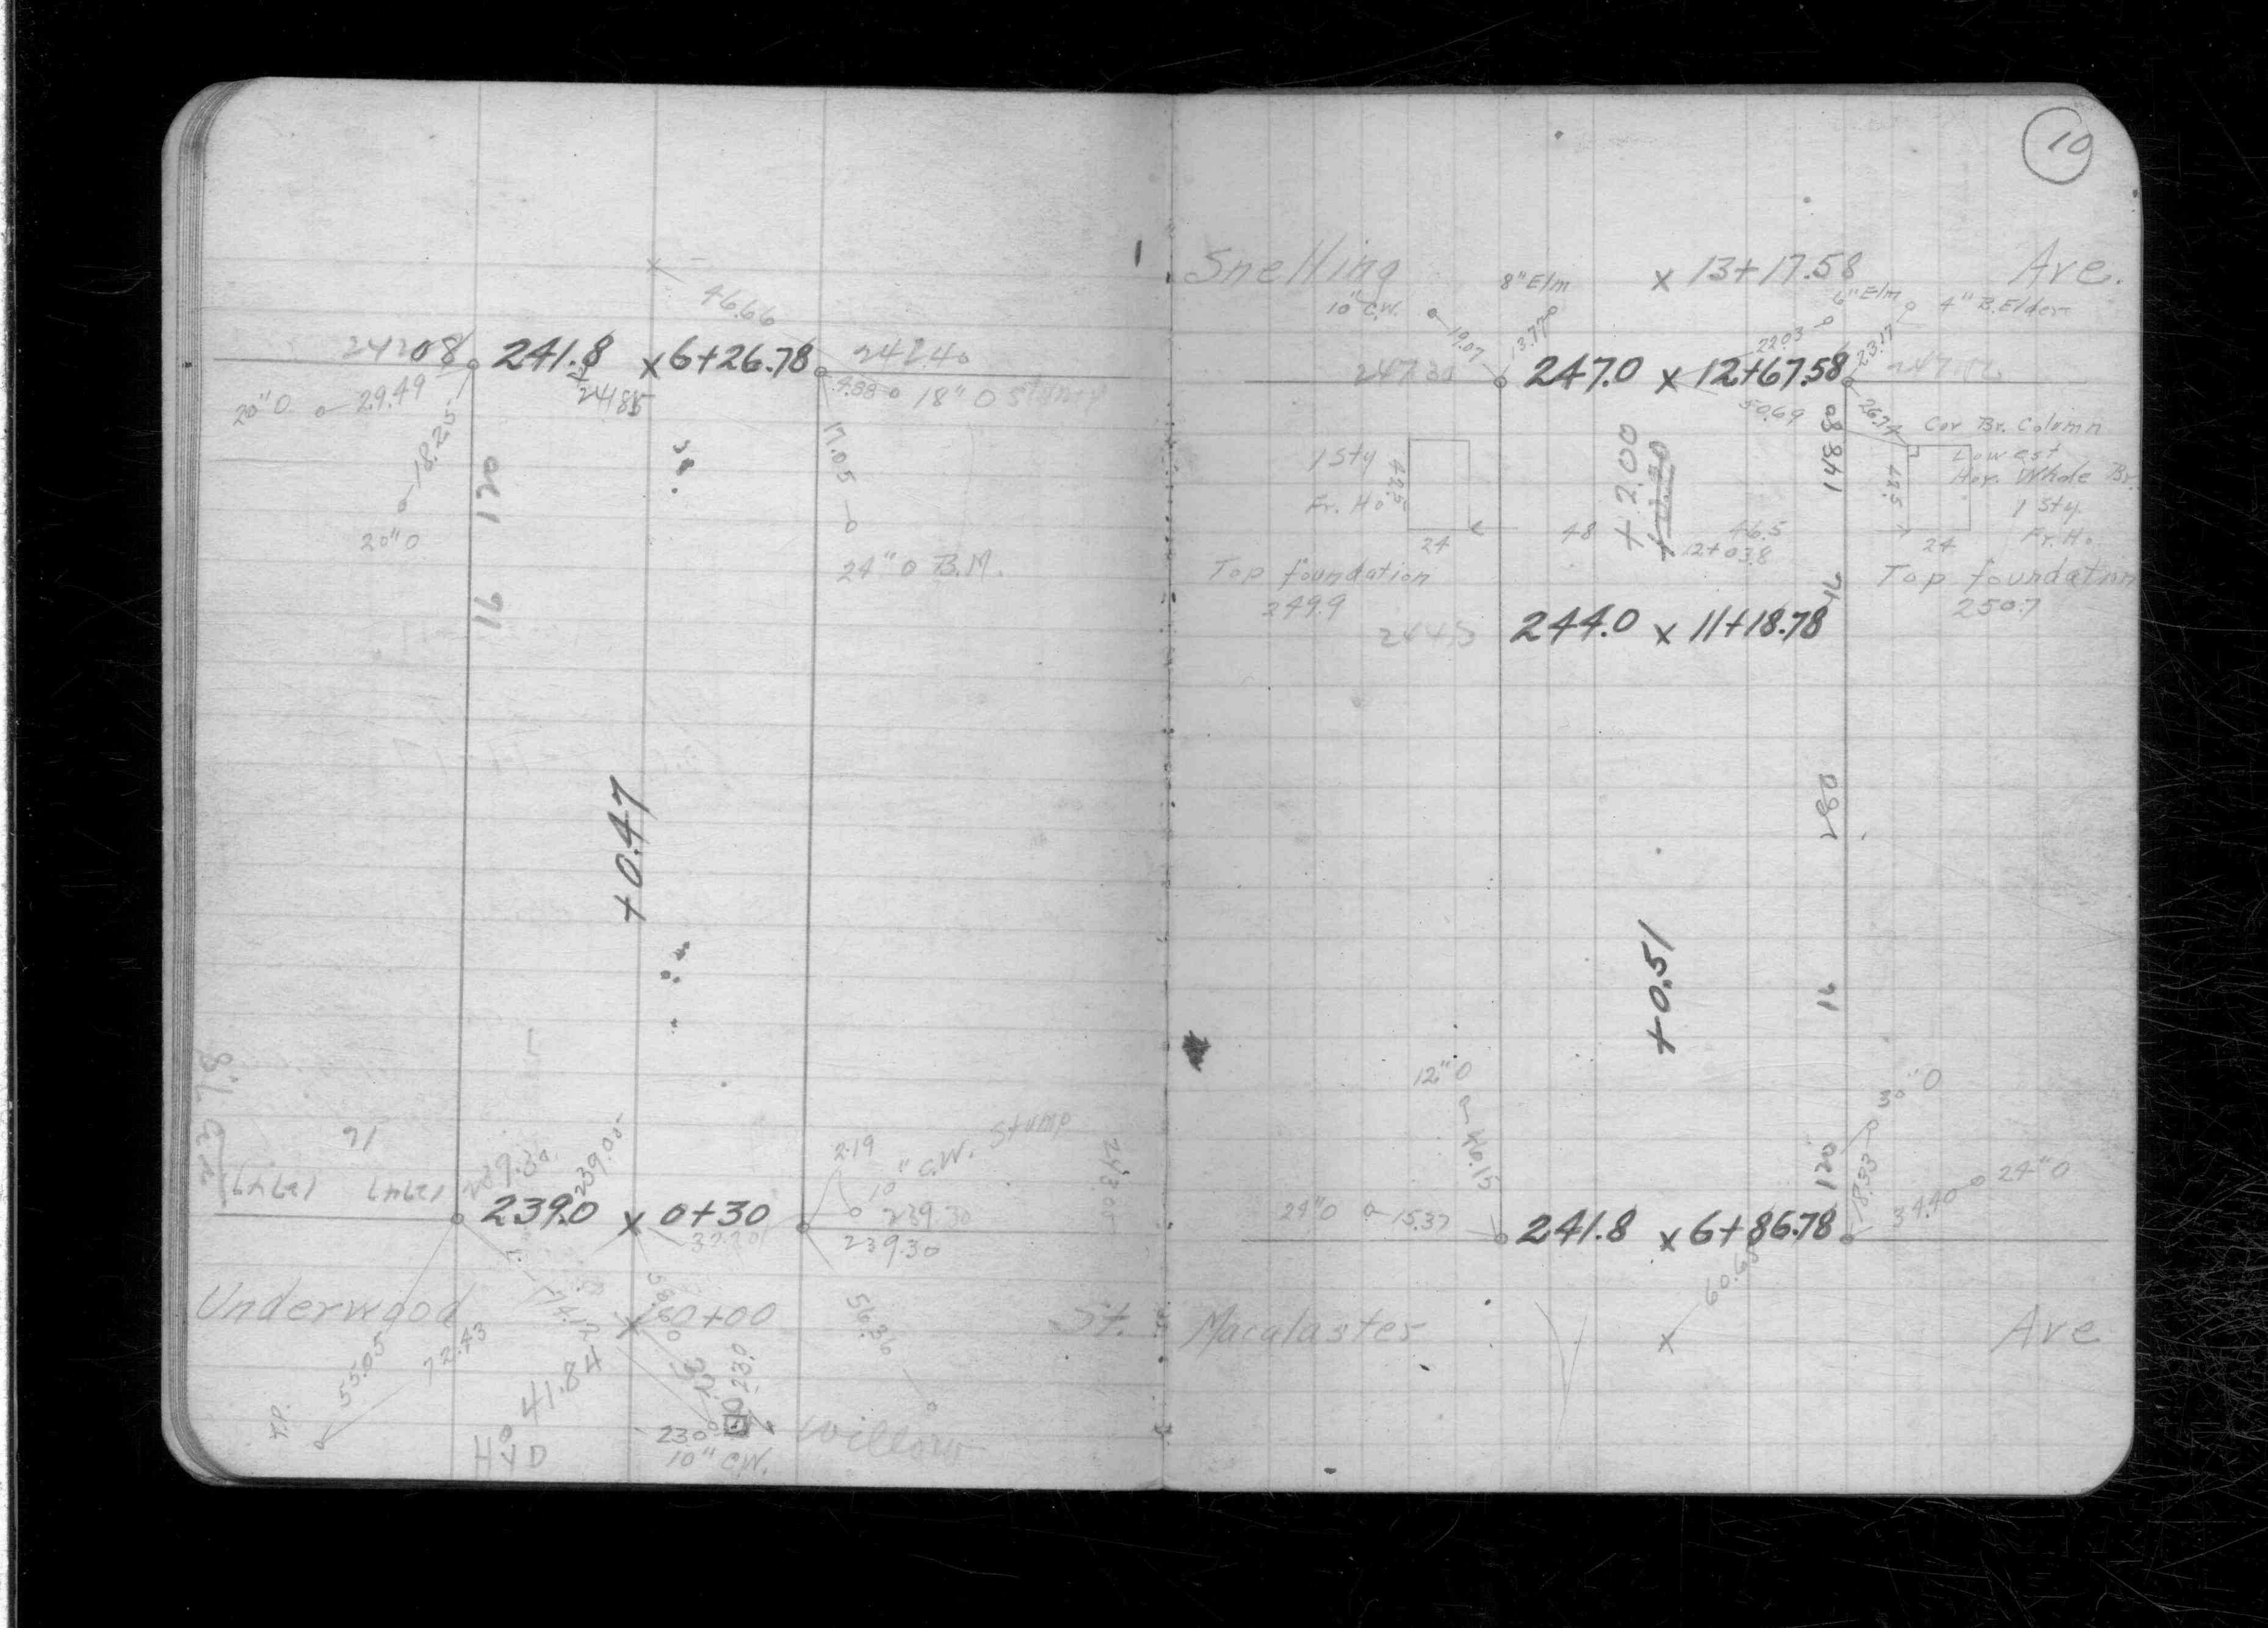 10
46.66
241.8 x 6+26.78 242.40
20"0 29.49
24185
4.88 18" 0 Stump
18.25
17.05
20"0
120
24" 0 B.M.
16
+0.47
16
12747 12747
239.30
239.05
2.19
10" C.W. Stump
239.0 x 0+30
239.30
239.30
243.05
Underwood St.
x 0+00
55.05
72.43
56.36
41.84
T.P.
HYD
230
10" C.W.
Willow
Snelling Ave.
x 13+17.58
8" Elm
6" Elm
10" C.W.
4" B.Elder
19.07
13.77
22.03
23.17
247.30 247.0 x 12+67.58
50.69
26.74
Cor Br. Column
Lowest
Hor. Whole Br.
1 Sty
Fr. Ho.
42.5
24
48
+2.00
46.5
12+03.8
148.80
42.5
1 Sty.
Fr. Ho.
24
Top foundation
249.9
Top foundation
250.7
16
244.0 x 11+18.78
280
+0.51
16
12"0
46.15
30"0
120
18.93
24"0 15.37
34.40 24"0
241.8 x 6+86.78
60.65
Macalaster x Ave